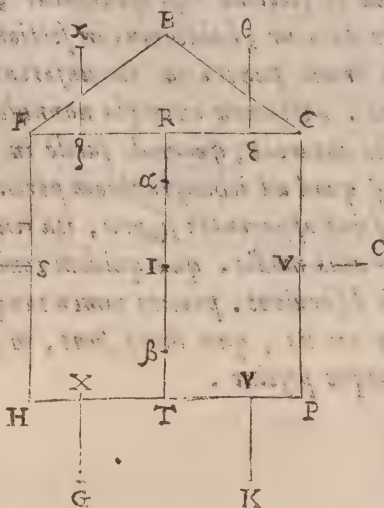 x B θ
F R C
ζ ε
α
S I V O
β
X V
H T P
G K